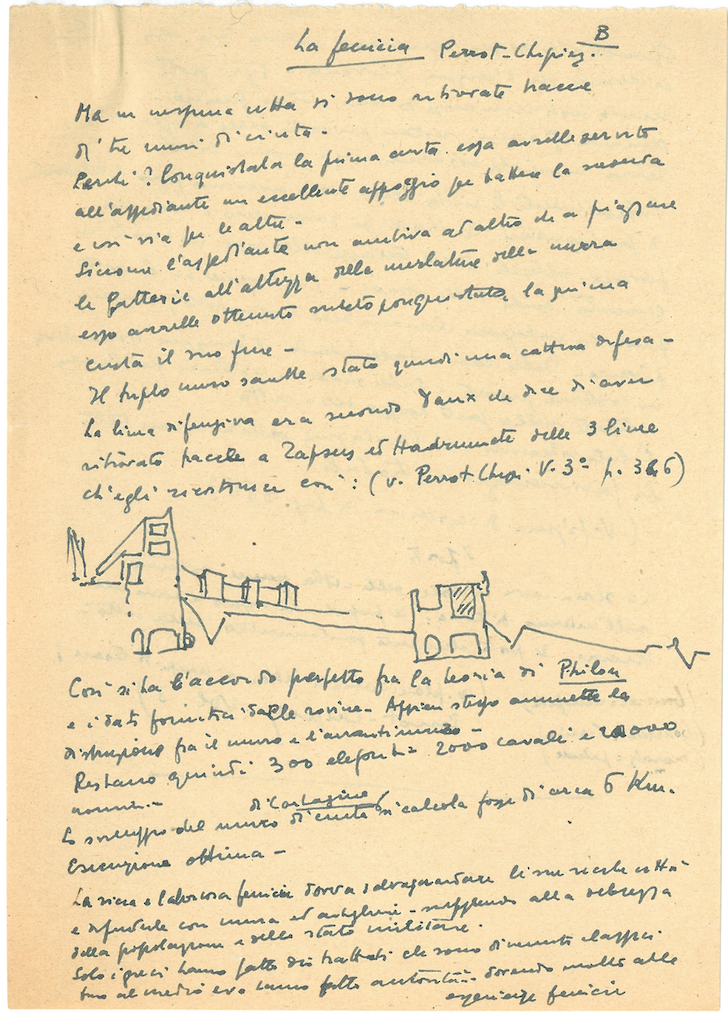 La fenicia Perrot-Chipiez. B
Ma in nessuna città si sono ritrovate tracce
di tre muri di cinta -
Perché? Conquistata la prima cinta essa avrebbe servito
all'assediante un eccellente appoggio per battere la seconda
e così via per le altre -
Siccome l'assediante non ambiva ad altro che a piazzare
le batterie all'altezza delle merlature delle mura
esso avrebbe ottenuto subito conquistata la prima
cinta il suo fine -
Il triplo muro sarebbe stato quindi una cattiva difesa -
La linea difensiva era secondo Daux che dice di aver
ritrovato tracce a Tapsus ed Hadrumete delle 3 linee
ch'egli ricostruisce così: (v. Perrot-Chipi. V. 3° p. 346)
Così si ha l'accordo perfetto fra la teoria di Philon
e i dati forniti dalle rovine - Appien stesso ammette la
distinzione fra il muro e l'avantimuro -
Restano quindi 300 elefanti - 2000 cavalli e 20000
uomini -
Lo sviluppo del muro di cinta di Cartagine si calcola fosse di circa 6 Km.
Esecuzione ottima -
La ricca e laboriosa fenicia doveva salvaguardare le sue ricche città
e difenderle con mura ed artiglierie - supplendo alla debolezza
della popolazione e dello stato militare.
Solo i greci hanno fatto dei trattati che sono divenuti classici
fino al medio evo hanno fatto autorità - dovendo molto alle
esperienze fenicie